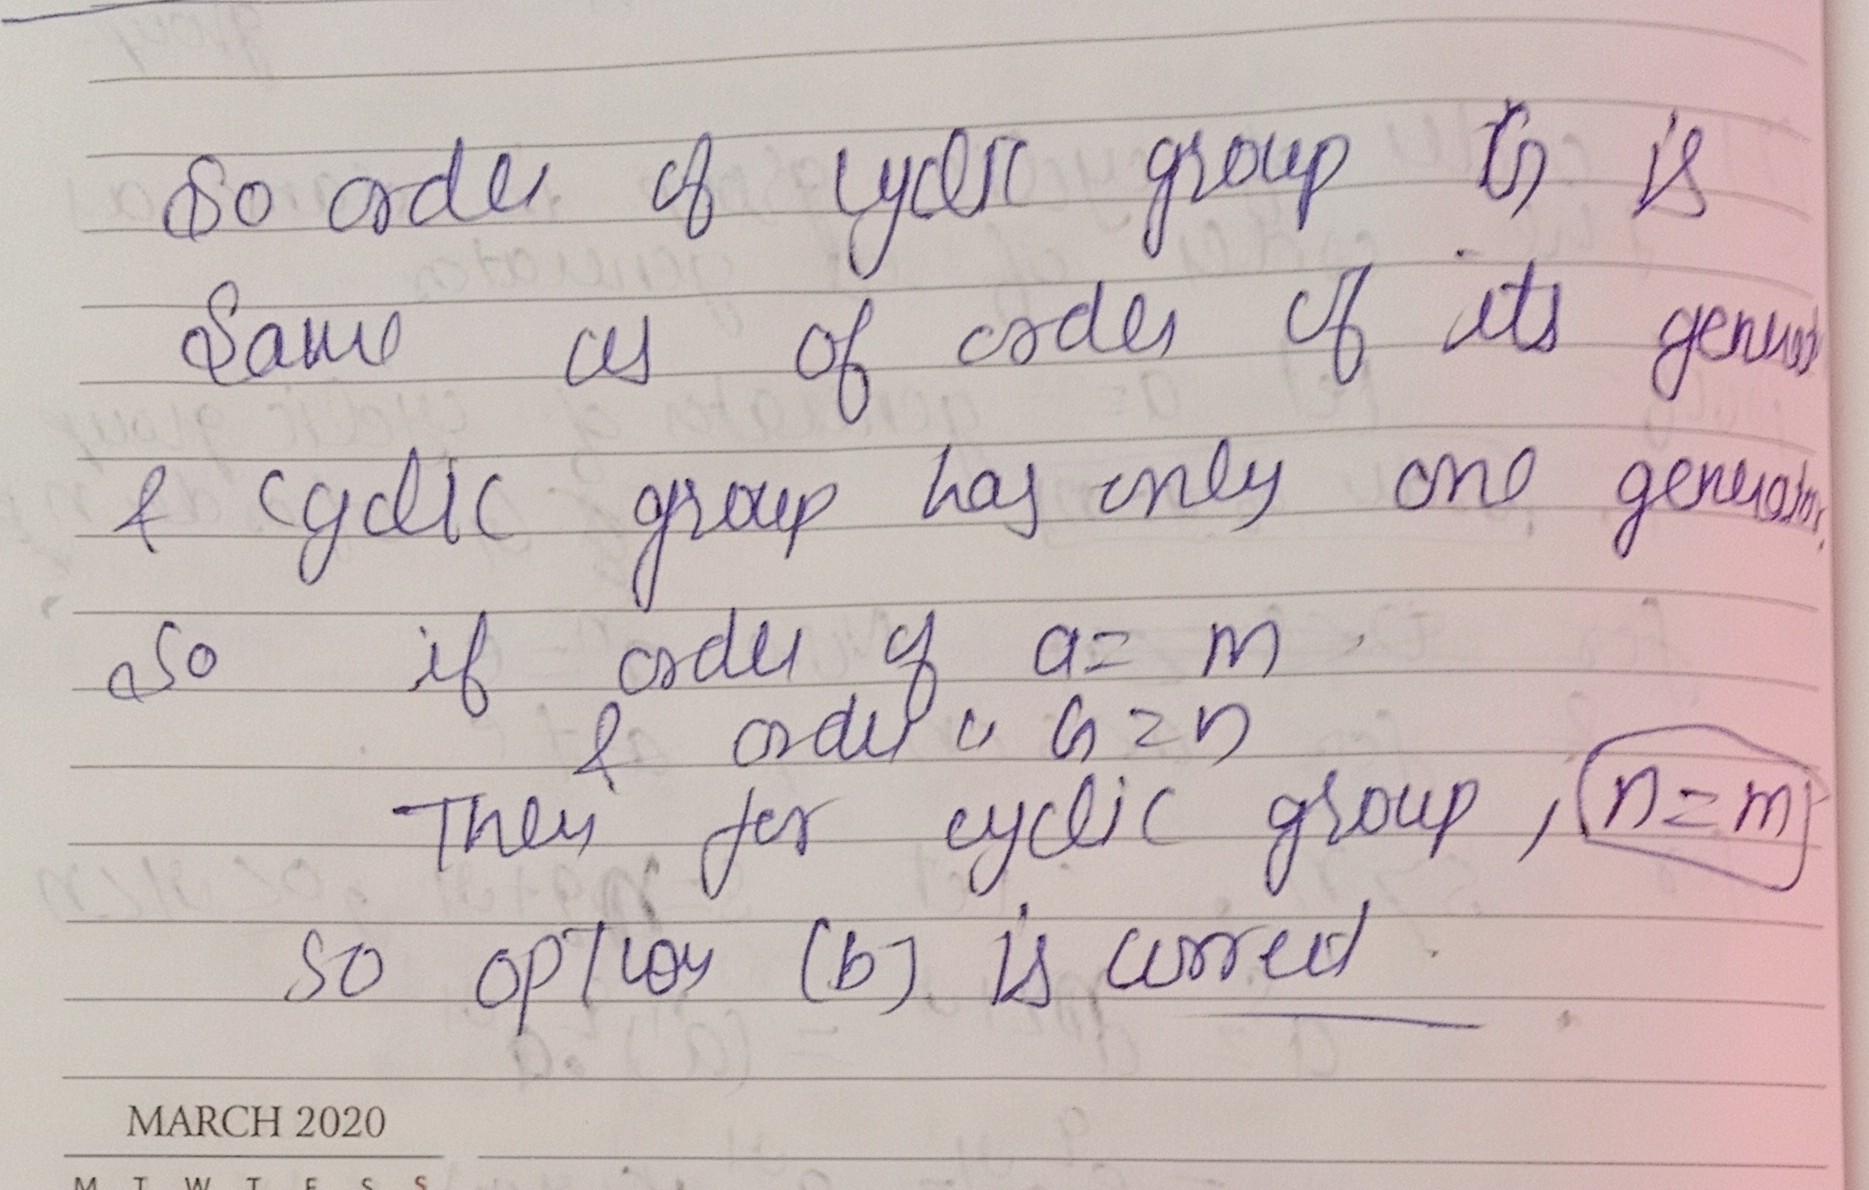 So order of cyclic group G is
Same as of order of its generat
& cyclic group has only one generator.
So if order of a = m
& order " G = n
Then for cyclic group, n = m
so option (b) is correct.
MARCH 2020
M T W T F S S